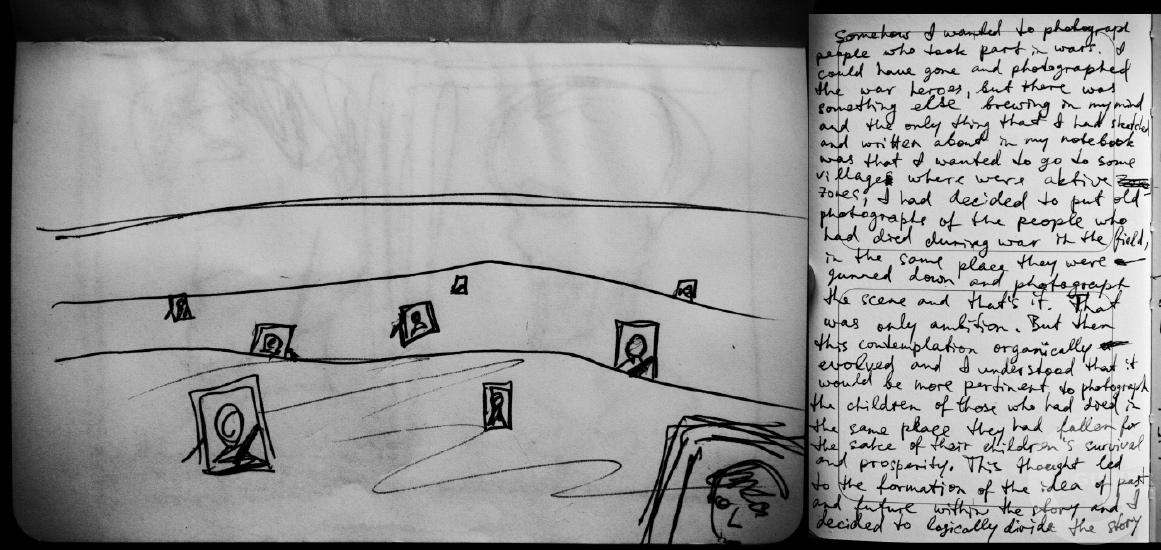 Somehow I wanted to photograph
people who took part in wars. I
could have gone and photographed
the war heroes, but there was
something else brewing in my mind
and the only thing that I had sketched
and written about in my notebook
was that I wanted to go to some
villages where were active
zones, I had decided to put old
photographs of the people who
had died during war in the field,
in the same place they were
gunned down and photograph
the scene and that's it. That
was only ambition. But then
this contemplation organically
evolved and I understood that it
would be more pertinent to photograph
the children of those who had died in
the same place they had fallen for
the sake of their children's survival
and prosperity. This thought led
to the formation of the idea of past
and future within the story and I
decided to logically divide the story